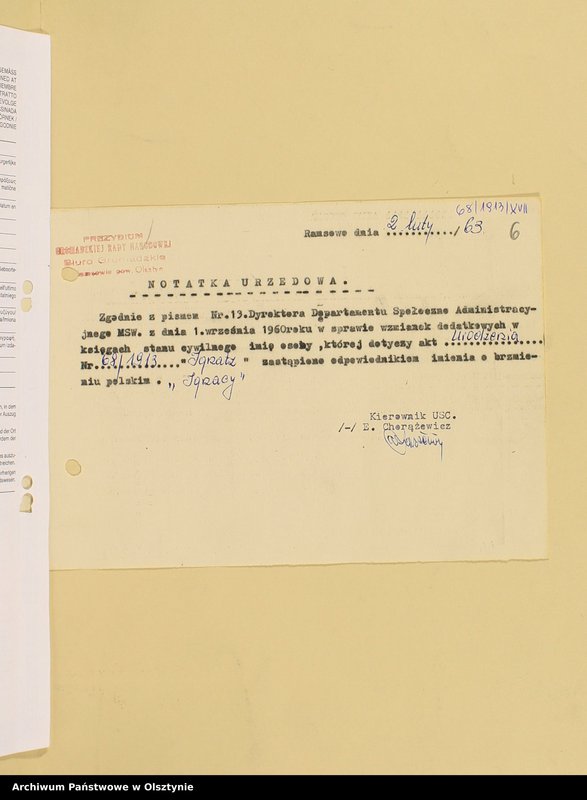 GEMÄSS
NED AT
IEMBRE
TRATTO
EVOLGE
SINADA
ÖRNEK /
GODNIE
68/1913/XVII
Ramsowo dnia 2 luty / 63
6
PREZYDIUM
GROMADZKIEJ RADY NARODOWEJ
Biuro Gromadzkie
pow. Olsztyn
NOTATKA URZEDOWA.
Zgodnie z pismem Nr.13.Dyrektora Departamentu Społeczno Administracy-
jnego MSW. z dnia 1.września 1960roku w sprawie wzmianek dodatkowych w
księgach stanu cywilnego imię osoby ,której dotyczy akt urodzenia
Nr. 68/1913 ...." Ignatz " zastąpiono odpowiednikiem imienia o brzmie-
niu polskim . „ Ignacy"
Kierownik USC.
/-/ E. Chorążewicz
Archiwum Państwowe w Olsztynie